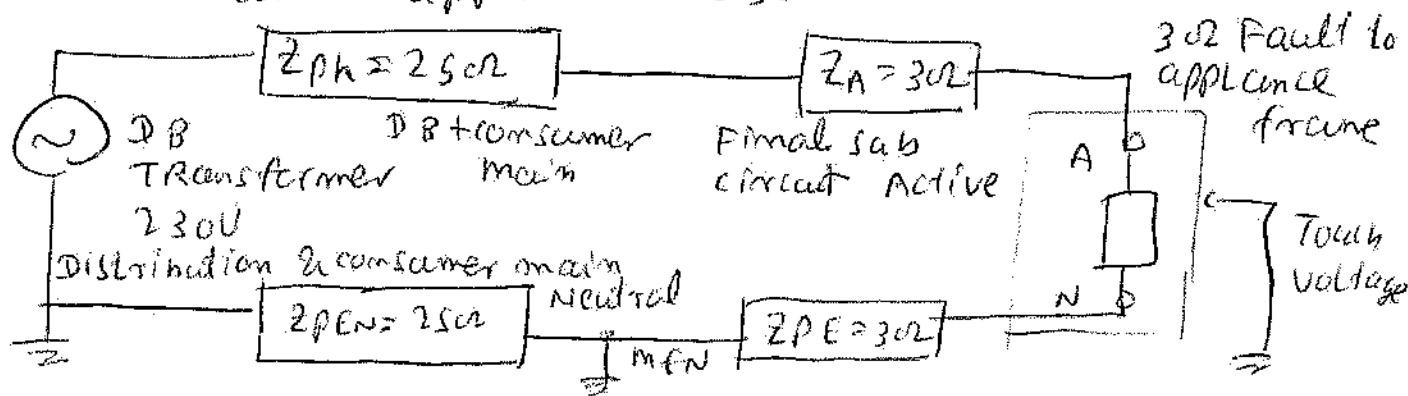 3Ω Fault to
appliance
frame
Zph = 25Ω
ZA = 3Ω
DB
Transformer
230V
DB + consumer
main
Final sub
circuit Active
A
Touch
voltage
Distribution & consumer main
Neutral
ZPEN = 25Ω
MEN
ZPE = 3Ω
N